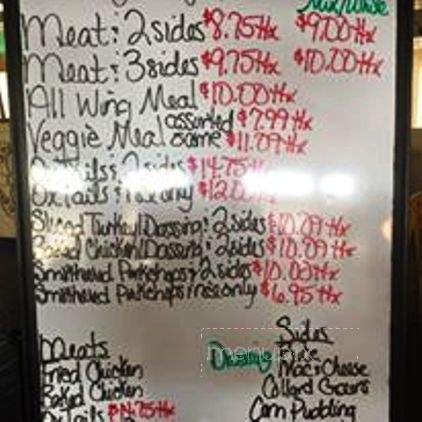 Mix/White
Meat & 2 sides $8.75+tx $9.00+tx
Meat & 3 sides $9.75+tx $10.00+tx
All Wing Meal $10.00+tx
Veggie Meal assorted $7.99+tx
same $11.09+tx
Oxtails & 2 sides $14.75+tx
Oxtails & rice only $12.0
Sliced Turkey/Dressing & 2 sides $10.09+tx
Baked Chicken/Dressing & 2 sides $10.09+tx
Smothered Porkchops & 2 sides $10.00+tx
Smothered Porkchops rice only $6.95+tx
Meats
Fried Chicken
Baked Chicken
Oxtails $14.75+tx
Sides
Dressing Rice
Mac & Cheese
Collard Greens
Corn Pudding